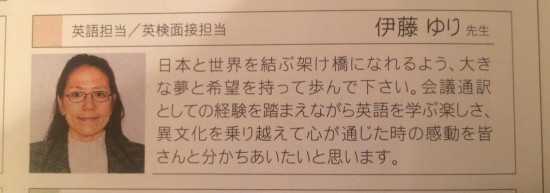 英語担当/英検面接担当 伊藤 ゆり 先生
日本と世界を結ぶ架け橋になれるよう、大き
な夢と希望を持って歩んで下さい。会議通訳
としての経験を踏まえながら英語を学ぶ楽しさ、
異文化を乗り越えて心が通じた時の感動を皆
さんと分かちあいたいと思います。